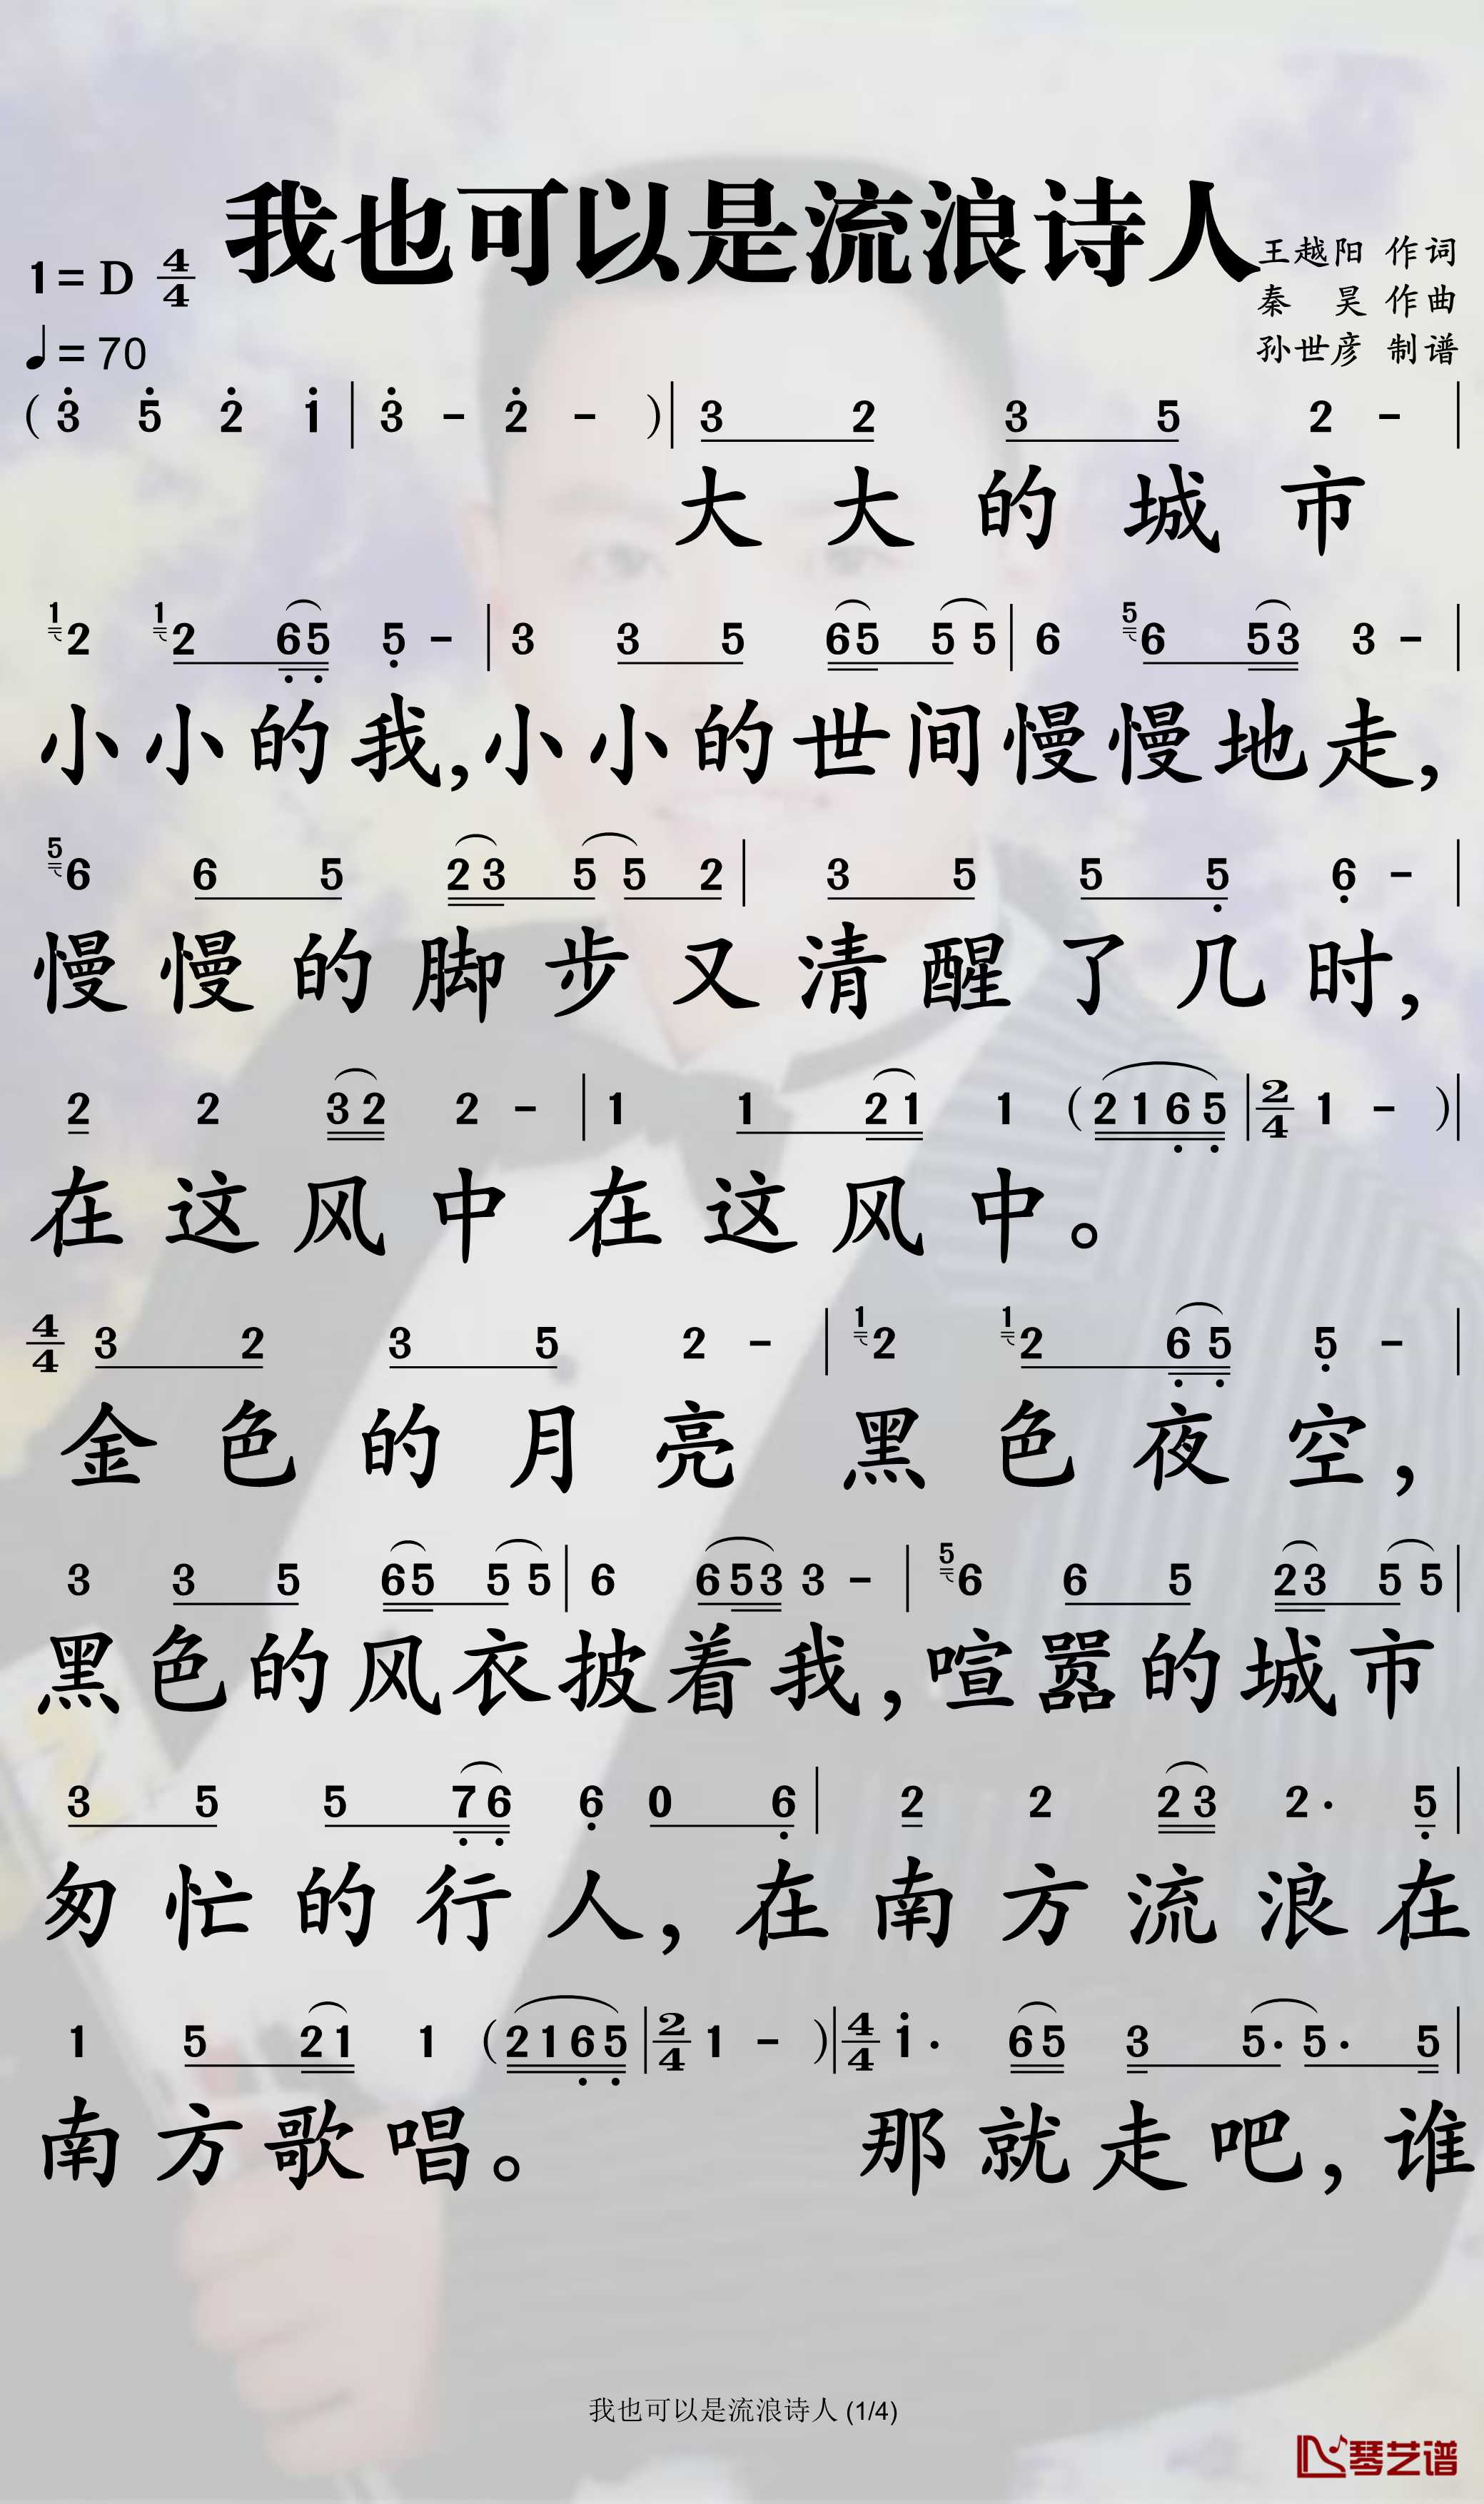 我也可以是流浪诗人
1= D 4/4
王越阳 作词
秦 昊 作曲
♩= 70
孙世彦 制谱
( 3̇ 5̇ 2̇ 1̇ | 3̇ - 2̇ - ) | 3 2 3 5 2 - |
大 大 的 城 市
1 2 1 2 6̣ 5̣ 5̣ - | 3 3 5 6 5 5 5 | 6 5 6 5 3 3 - |
小 小 的 我, 小 小 的 世 间 慢 慢 地 走,
5 6 6 5 2 3 5 5 2 | 3 5 5 5̣ 6̣ - |
慢 慢 的 脚 步 又 清 醒 了 几 时,
2 2 3 2 2 - | 1 1 2 1 1 ( 2 1 6̣ 5̣ | 2/4 1 - ) |
在 这 风 中 在 这 风 中 。
4/4 3 2 3 5 2 - | 1 2 1 2 6̣ 5̣ 5̣ - |
金 色 的 月 亮 黑 色 夜 空,
3 3 5 6 5 5 5 | 6 6 5 3 3 - | 5 6 6 5 2 3 5 5 |
黑 色 的 风 衣 披 着 我, 喧 嚣 的 城 市
3 5 5 7̣ 6̣ 6̣ 0 6̣ | 2 2 2 3 2 · 5̣ |
匆 忙 的 行 人, 在 南 方 流 浪 在
1 5 2 1 1 ( 2 1 6̣ 5̣ | 2/4 1 - ) | 4/4 1̇ · 6 5 3 5 · 5 · 5 |
南 方 歌 唱 。 那 就 走 吧, 谁
我也可以是流浪诗人 (1/4)
琴艺谱